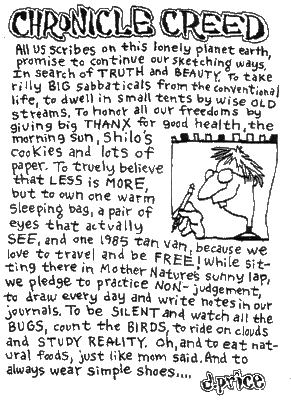 CHRONICLE CREED
All us scribes on this lonely planet earth,
promise to continue our sketching ways.
In search of TRUTH and BEAUTY. To take
rilly BIG sabbaticals from the conventional
life, to dwell in small tents by wise OLD
streams. To honor all our freedoms by
giving big THANX for good health, the
morning sun, Shilo's
cookies and lots of
paper. To truely believe
that LESS is MORE,
but to own one warm
sleeping bag, a pair of
eyes that actually
SEE, and one 1985 tan van, because we
love to travel and be FREE! While sit-
ting there in Mother Nature's sunny lap,
we pledge to practice NON-judgement,
to draw every day and write notes in our
journals. To be SILENT and watch all the
BUGS, count the BIRDS, to ride on clouds
and STUDY REALITY. Oh, and to eat nat-
ural foods, just like mom said. And to
always wear simple shoes....
d.price